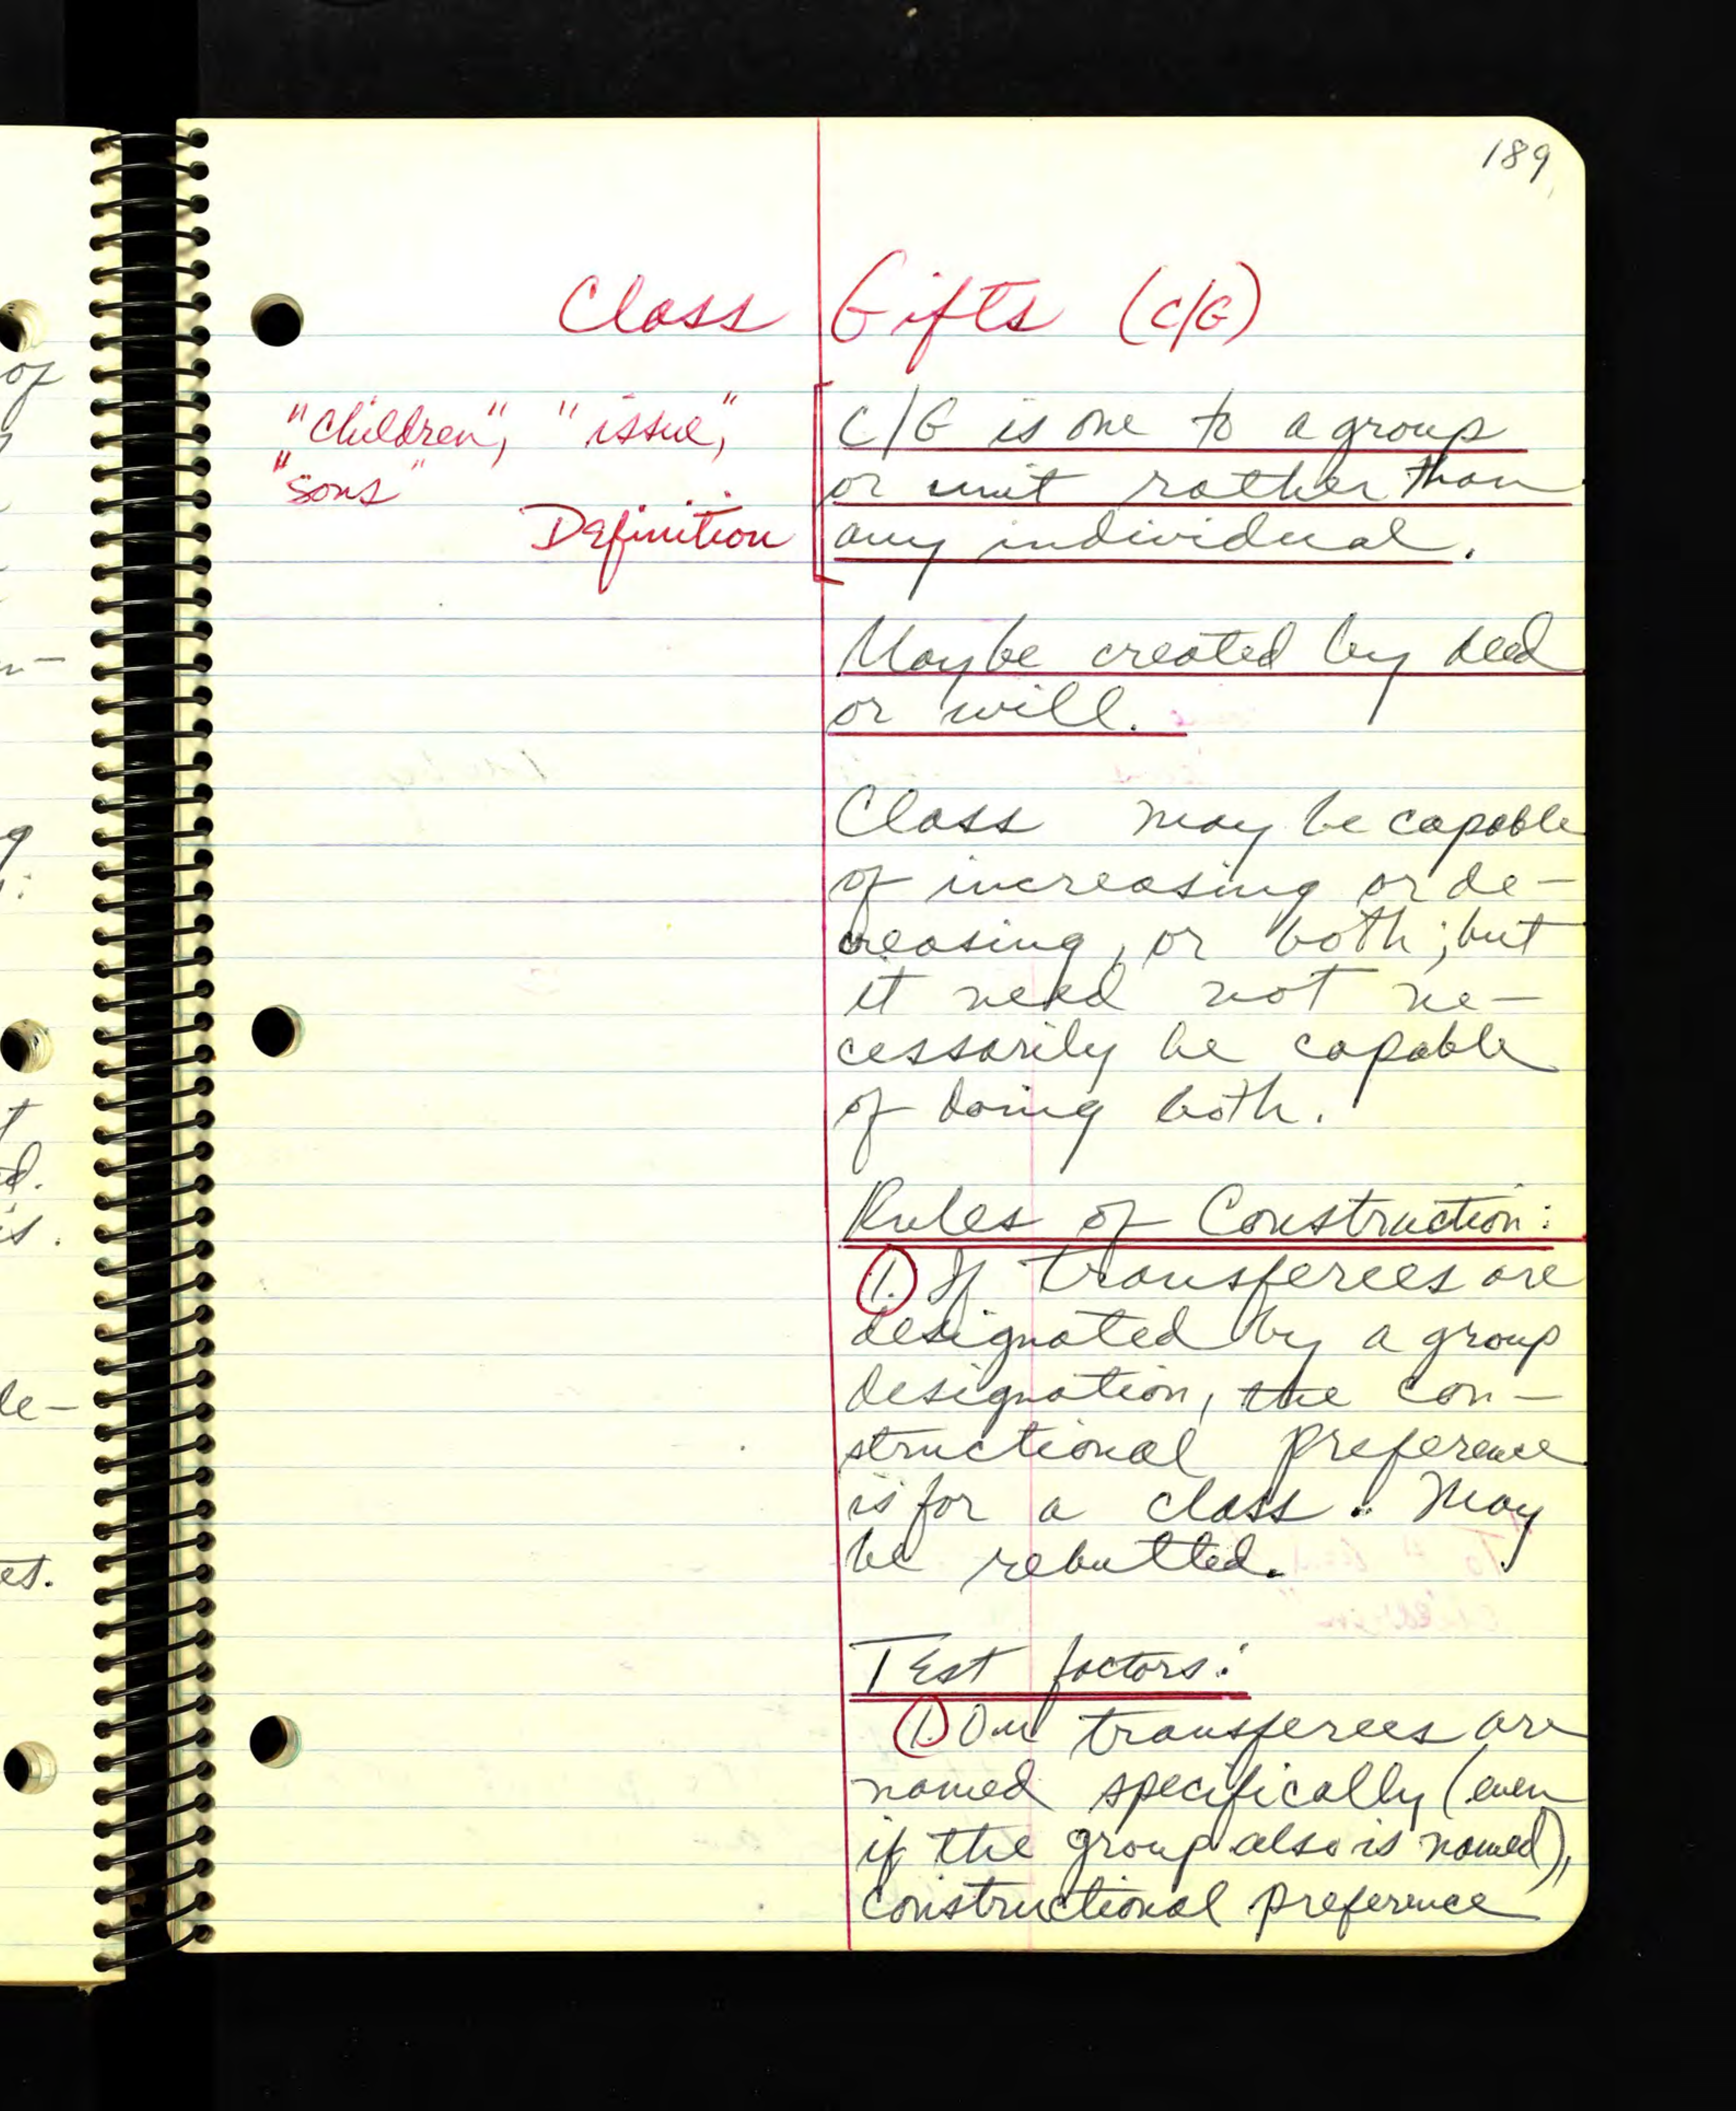 189
Class Gifts (C/G)
"Children", "issue",
"sons"
Definition
C/G is one to a group
or unit rather than
any individual.
May be created by deed
or will.
Class may be capable
of increasing or de-
creasing, or both; but
it need not ne-
cessarily be capable
of doing both.
Rules of Construction:
1. If transferees are
designated by a group
designation, the con-
structional preference
is for a class. May
be rebutted.
Test factors:
1. transferees are
named specifically (even
if the group also is named),
constructional preference
of
ng
t
d.
is.
de-
et.